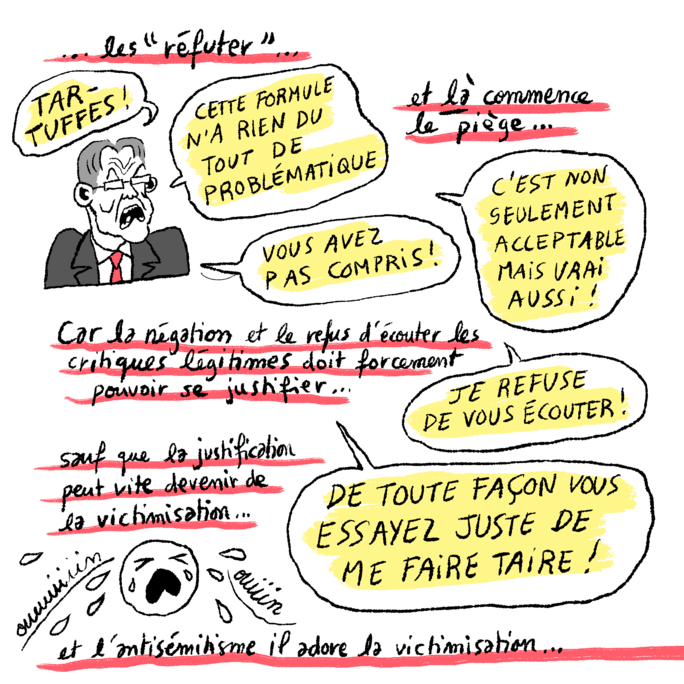 ... les "réfuter"...
TAR-
TUFFES !
CETTE FORMULE
N'A RIEN DU
TOUT DE
PROBLÉMATIQUE
et là commence
le piège...
C'EST NON
SEULEMENT
ACCEPTABLE
MAIS VRAI
AUSSI !
VOUS AVEZ
PAS COMPRIS !
Car la négation et le refus d'écouter les
critiques légitimes doit forcement
pouvoir se justifier...
JE REFUSE
DE VOUS ÉCOUTER !
sauf que la justification
peut vite devenir de
la victimisation...
DE TOUTE FAÇON VOUS
ESSAYEZ JUSTE DE
ME FAIRE TAIRE !
ouiiin
et l'antisémitisme il adore la victimisation...